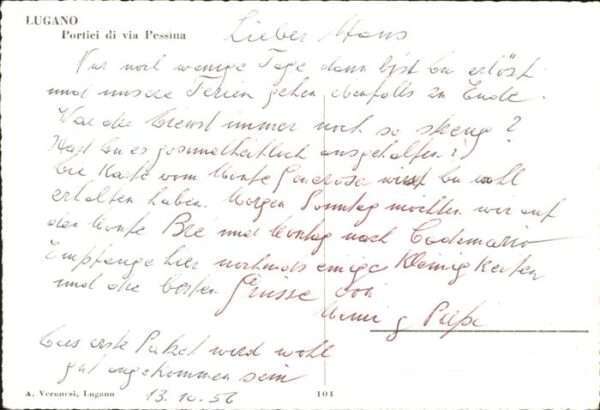 LUGANO
Portici di via Pessina
Lieber Hans
Nur noch wenige Tage dann bist Du erlöst
und unsere Ferien gehen ebenfalls zu Ende.
War der Dienst immer noch so streng?
Hast Du es gesundheitlich ausgehalten?
Die Karte vom Monte Generose wirst Du wohl
erhalten haben. Morgen Sonntag möchten wir auf
den Monte Bré und Montag nach Cademario
Empfange hier nochmals einige Kleinigkeiten
und die besten Grüsse von
Mimi
Das erste Paket wird wohl
gut angekommen sein
A. Veronesi, Lugano
101
13.10.56